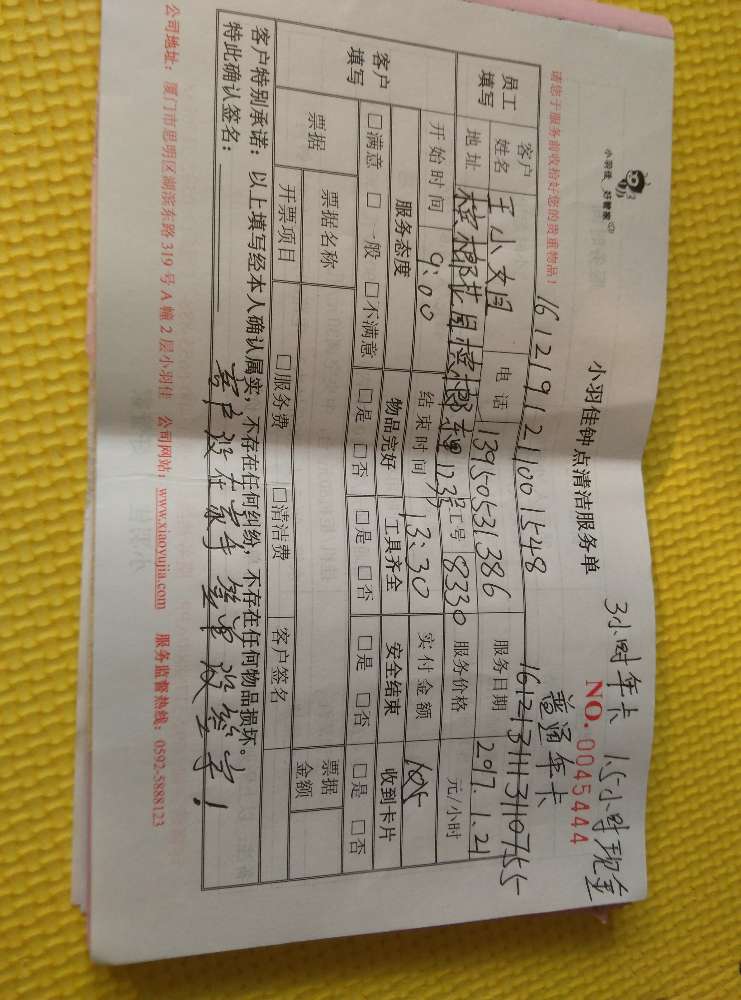 小羽佳 好管家
小羽佳钟点清洁服务单
3小时年卡 1.5小时现金
NO. 0045444
普通年卡
请您于服务前收拾好您的贵重物品!
1612191211001548
1612131113110755
员工填写
客户姓名 王小姐 电话 13950531386 服务日期 2017.1.21
地址 工号 8330 服务价格 元/小时
开始时间 9:00 结束时间 13:30 实付金额 105
客户填写
服务态度 物品完好 工具齐全 安全结束 收到卡片
□满意 □一般 □不满意 □是 □否 □是 □否 □是 □否 □是 □否
票据 票据名称 客户签名 票据金额
开票项目 □服务费 □清洁费
客户特别承诺:以上填写经本人确认属实,不存在任何纠纷,不存在任何物品损坏。
特此确认签名:
客户没在家手签单没签字!
公司地址:厦门市思明区湖滨东路319号A幢2层小羽佳 公司网站:www.xiaoyujia.com 服务监督热线:0592-5888123